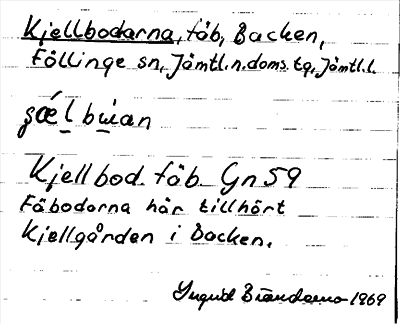 Kjellbodarna, fäb, Backen,
Föllinge sn, Jämtl.n.doms.tg, Jämtl.l.
Kjellbod. fäb. Gn 59
Fäbodarna här tillhört
Kjellgården i Backen.
Ingrid 1969